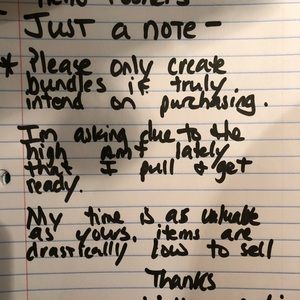 Just a note -
* Please only create
bundles if truly
intend on purchasing.
I'm asking due to the
high amt lately
that I pull & get
ready.
My time is as valuable
as yours, items are
drastically low to sell
Thanks